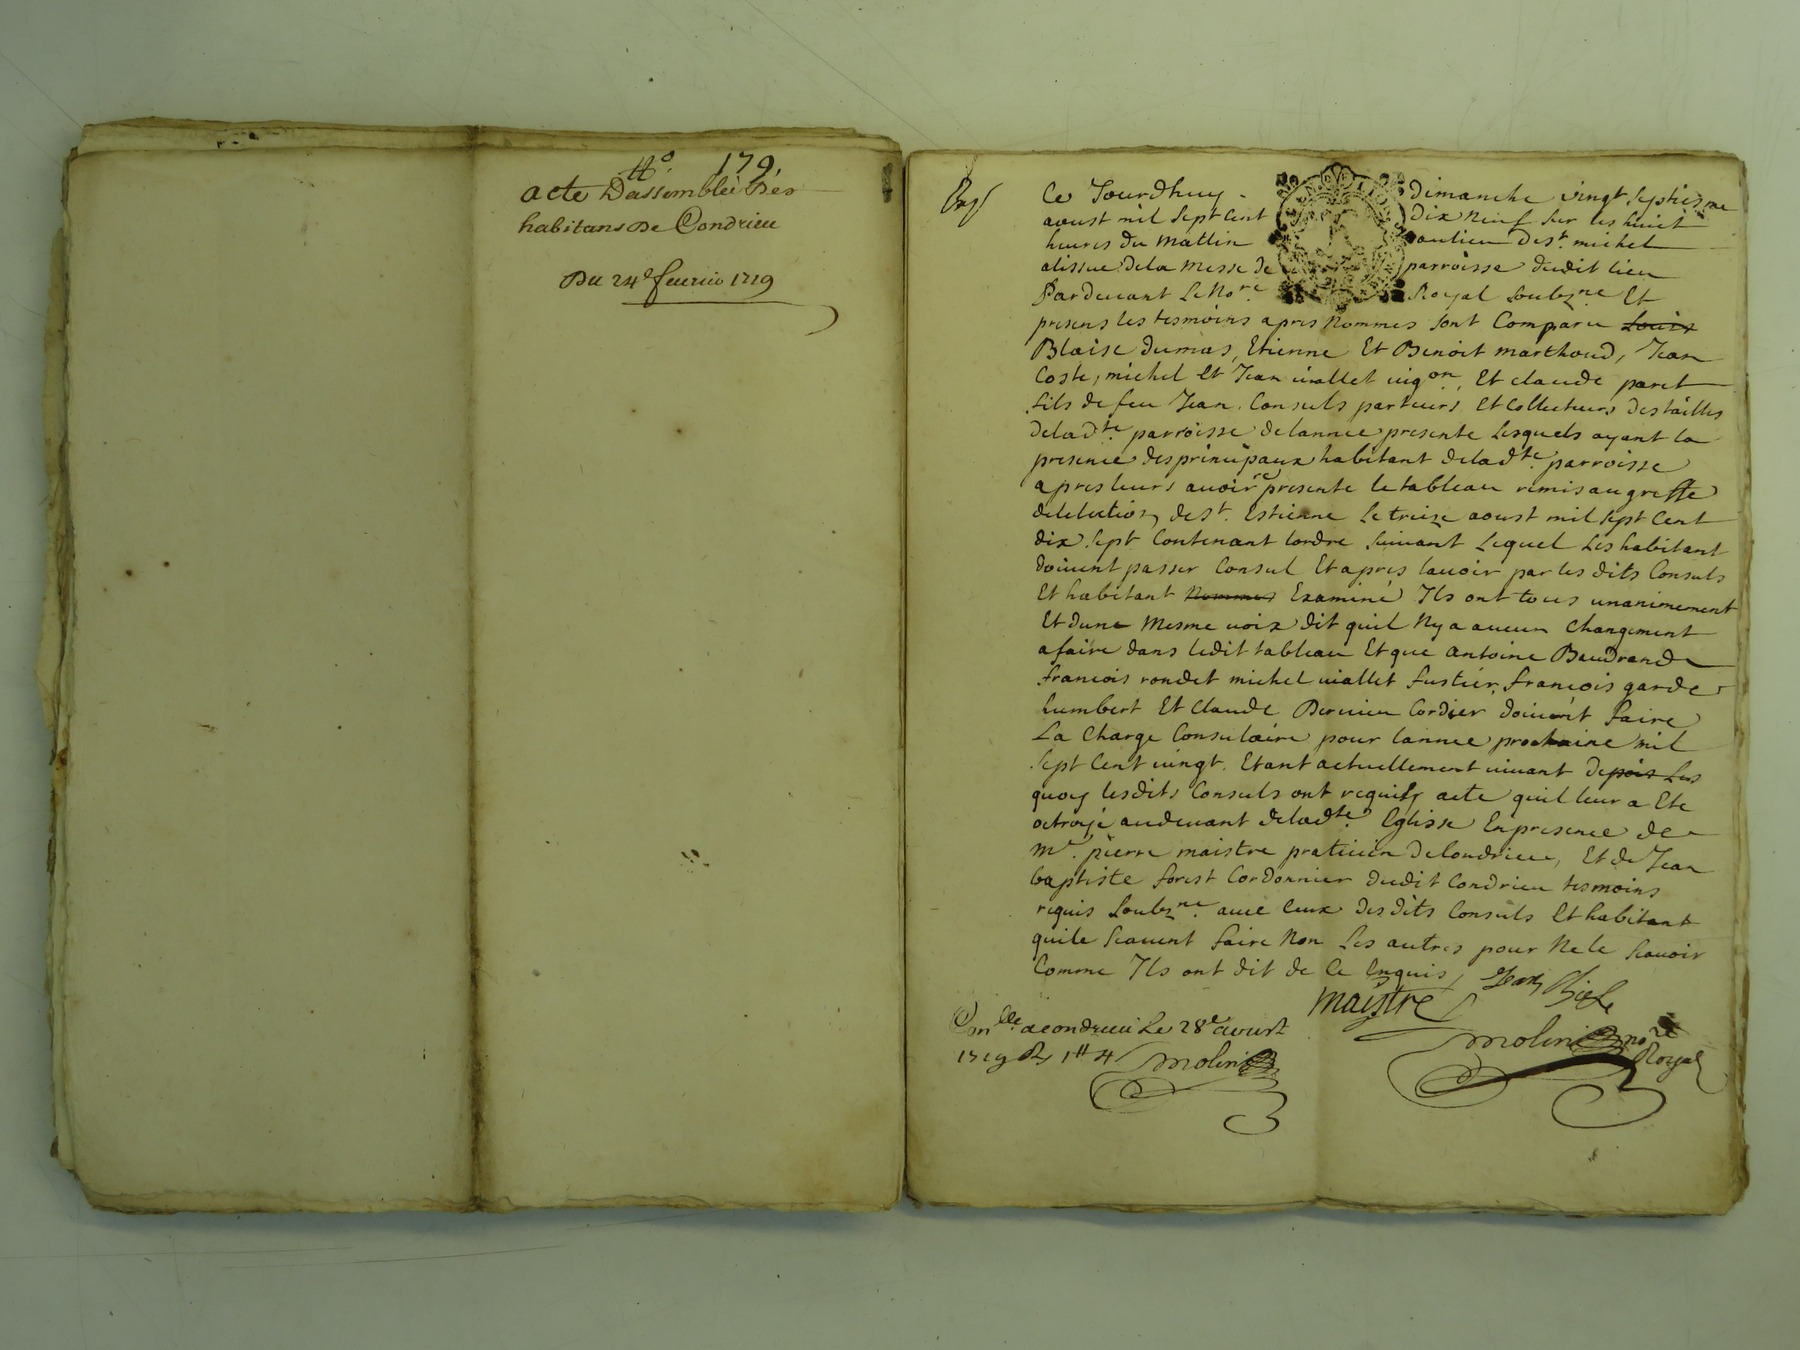 Nº. 179.
acte Dassemblée Des
habitans De Condrieu
Du 24e feurier 1719
Exp
Ce Jourdhuy dimanche vingt septiesme
aoust mil sept cent dix neuf sur les huict
heures du mattin au lieu de st. michel
a lissue de la messe de parroisse dudit lieu
Pardeuant le Nore. Royal soubzne Et
presens les tesmoins apres Nommes sont Comparu Louis
Blaise dumas, Etienne Et Benoit marthoud, Jean
Coste, michel Et Jean viallet vigon, Et claude paret
fils de feu Jean. Consuls parteurs Et Collecteurs des tailles
de ladte. parroisse de lannee presente lesquels ayant la
presence des principaux habitant de ladte. parroisse
apres leurs auoir representé le tableau remis au greffe
de lelection de st. Estienne le treize aoust mil sept cent
dix sept Contenant lordre suiuant lequel les habitant
doiuent passer Consul Et apres lauoir par les dits Consuls
Et habitant Nommes Examiné Ils ont tous unanimement
Et dune mesme uoix dit quil Ny a aucun Changement
a faire dans ledit tableau Et que antoine Baudrand
francois rondet michel viallet fustier, francois garde
humbert Et Claude Beruieu Cordier doiuent faire
La Charge Consulaire pour lannee prochaine mil
sept Cent uingt. Etant actuellement uiuant de
quoy lesdits Consuls ont requis acte quil leur a Ete
octroyé au deuant de ladte. Eglisse En presence de
me. pierre maistre praticien de Condrieu, Et de Jean
baptiste forest Cordonnier dudit Condrieu tesmoins
requis soubzne. auec Ceux des dits Consuls Et habitant
qui le scauent faire Non les autres pour Ne le scauoir
Comme Ils ont dit de Ce Enquis
maistre
molin nore
Royal
Conlle. a condrieu Le 28e aoust
1719
molin